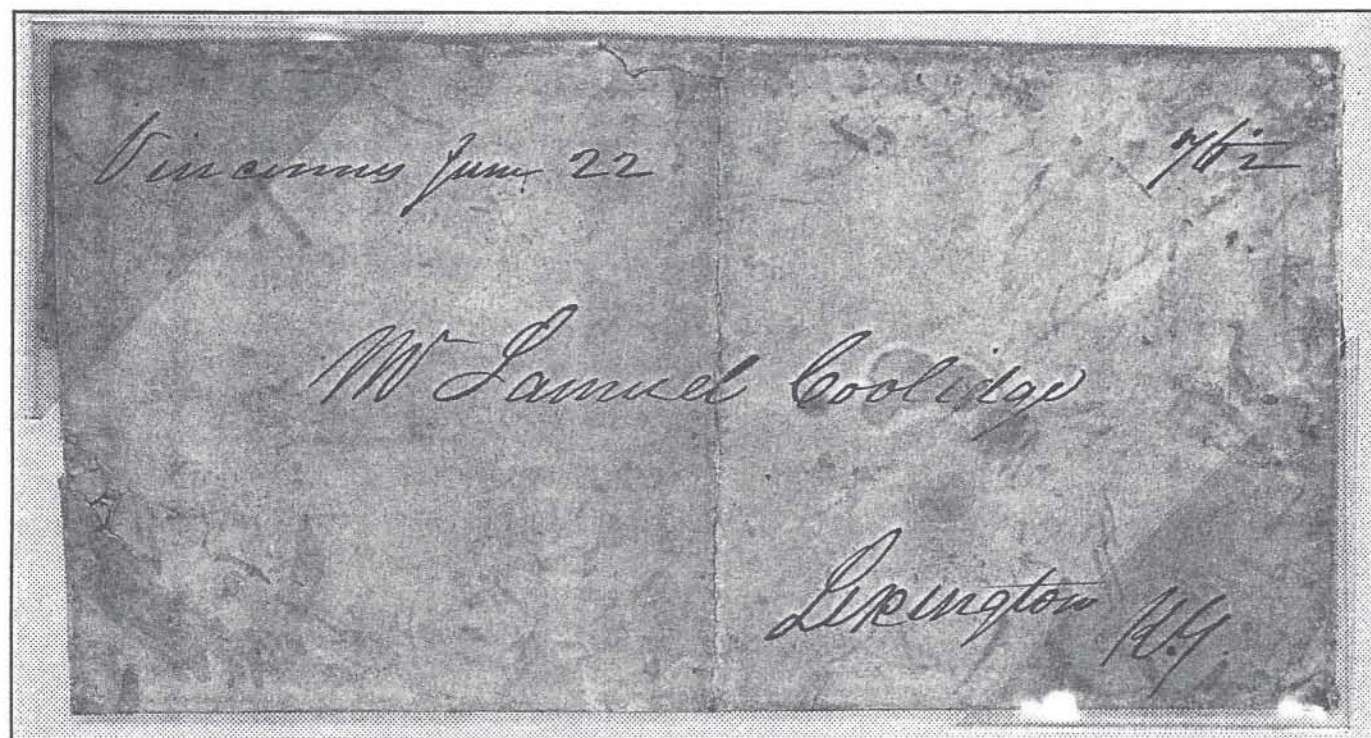 Vincennes June 22
Mr Samuel Coolidge
Lexington K.Y.